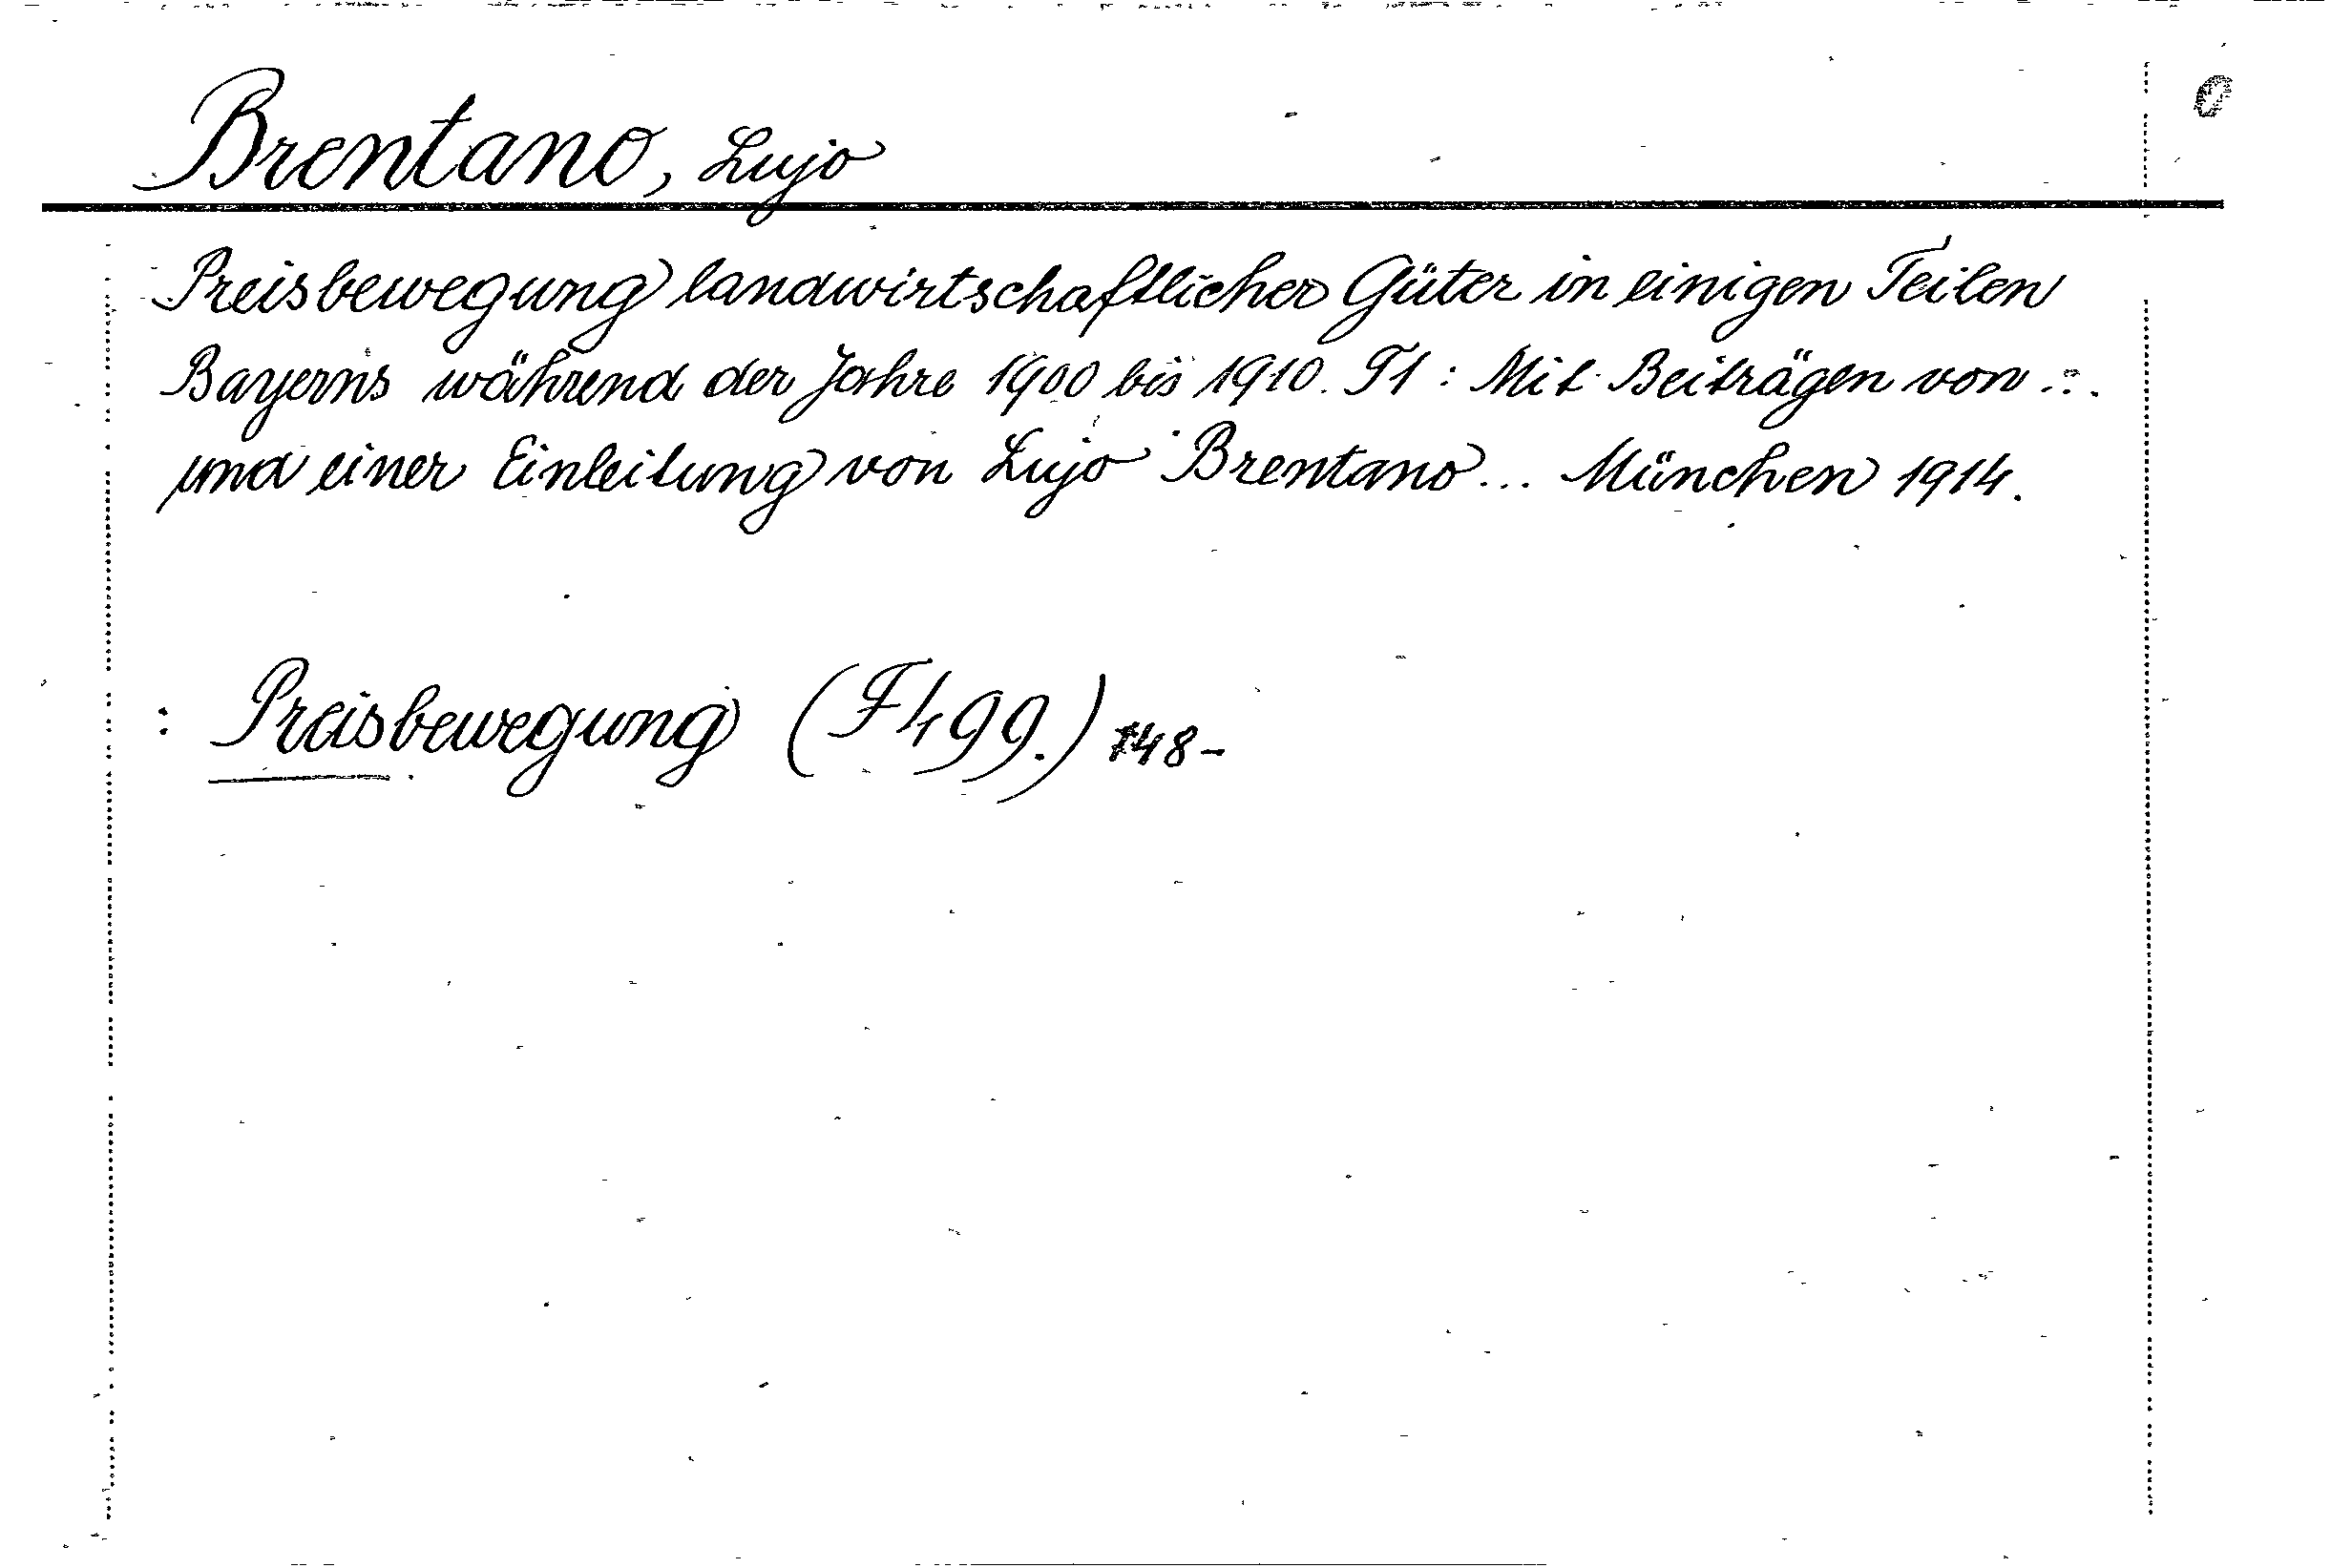 Brentano, Lujo
Preisbewegung landwirtschaftlicher Güter in einigen Teilen
Bayerns während der Jahre 1900 bis 1910. T1: Mit Beiträgen von ...
und einer Einleitung von Lujo Brentano... München 1914.
: Preisbewegung (F499.)